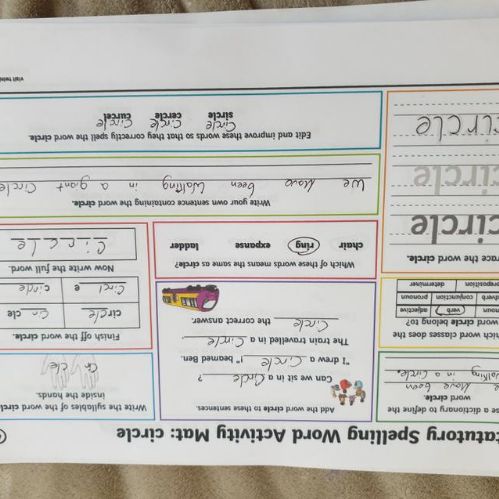 tatutory Spelling Word Activity Mat: circle
se a dictionary to define the
word circle.
e Have been
Walking in a Circle
Add the word circle to these sentences.
Can we sit in a Circle ?
"I drew a Circle !" beamed Ben.
The train travelled in a Circle
Circle the correct answer.
Write the syllables of the word circl
inside the hands.
Cir cle
which word classes does the
word circle belong to?
noun verb adjective
adverb conjunction pronoun
preposition determiner
Which of these words means the same as circle?
chair ring expanse ladder
Finish off the word circle.
circle Cir cle
Circl e circle
Now write the full word.
Circle
race the word circle.
circle
circle
circle
Write your own sentence containing the word circle.
We Have been Walking in a giant Circle
Edit and improve these words so that they correctly spell the word circle.
sircle cercle curcel
Circle Circle Circle
visit twink